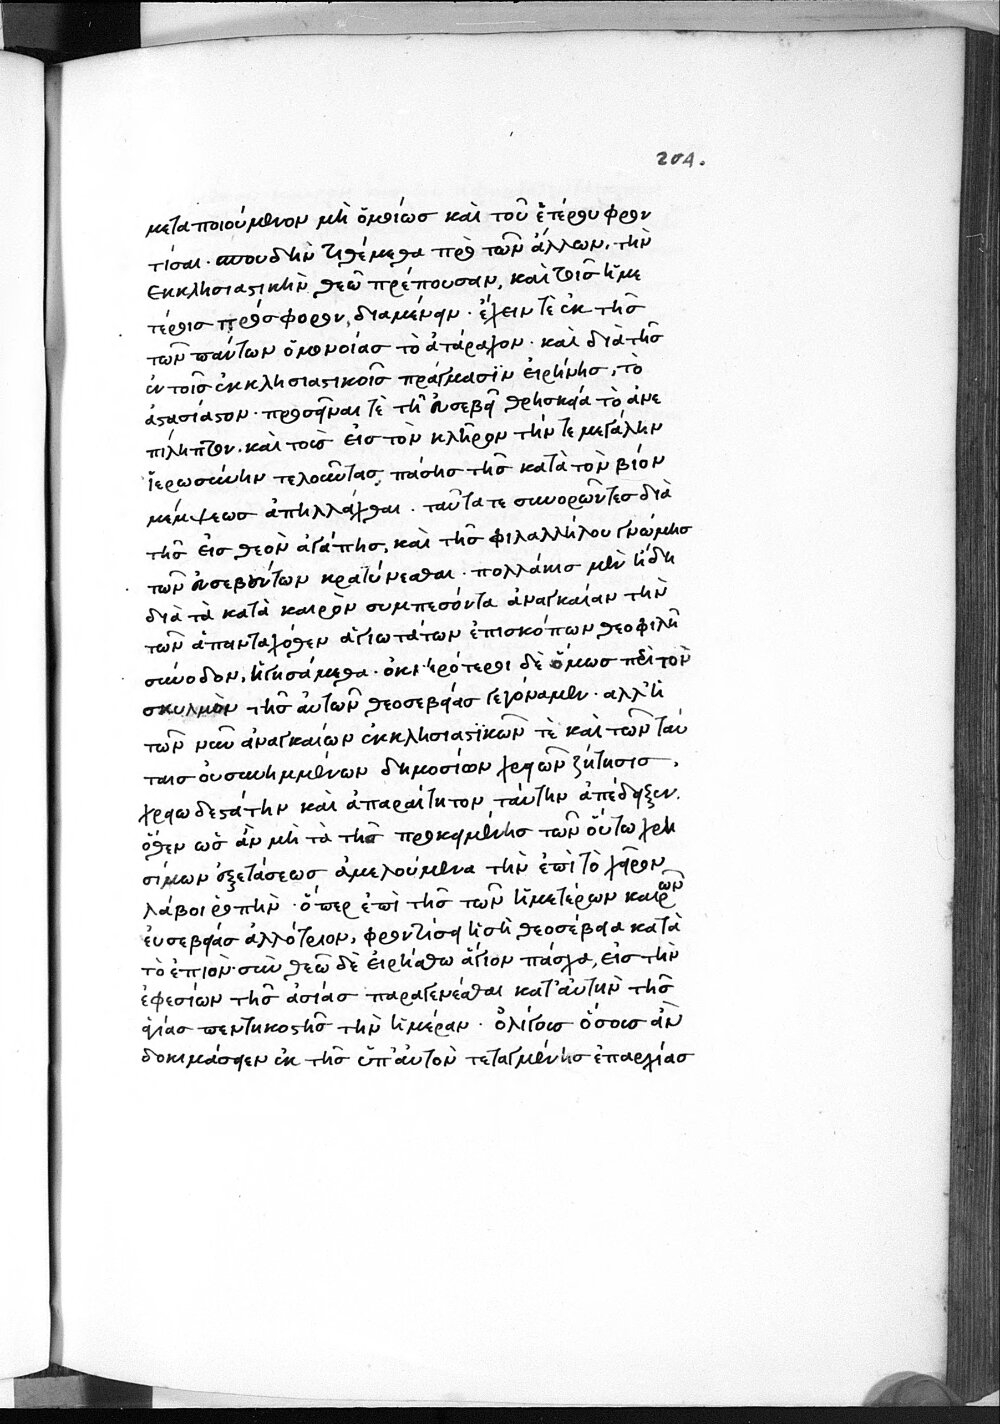 204.
μεταποιούμενον μὴ ὁμοίως καὶ τοῦ ἑτέρου φρον
τίσαι. σπουδὴν τιθέμεθα πρὸ τῶν ἄλλων, τὴν
ἐκκλησιαστικὴν θεῶ πρέπουσαν, καὶ τοῖς ἡμε
τέροις πρόσφορον, διαμένειν. ἔχειν τὲ ἐκ τῆς
τῶν πάντων ὁμονοίας τὸ ἀτάραχον. καὶ διὰ τῆς
ἐν τοῖς ἐκκλησιαστικοῖς πράγμασϊν εἰρήνης, τὸ
ἀστασίαστον. προσεῖναι τὲ τῆ εὐσεβεῖ θρησκεία τὸ ἀνε
πίληπτον. καὶ τοὺς εἰς τὸν κλῆρον τήν τε μεγάλην
ἱερωσύνην τελοῦντας, πάσης τῆς κατὰ τὸν βίον
μέμψεως ἀπηλλάχθαι. ταῦτα τε συνορῶντες διὰ
τῆς εἰς θεὸν ἀγάπης, καὶ τῆς φιλαλλήλου γνώμης
τῶν εὐσεβούντων κρατύνεσθαι. πολλάκις μὲν ἤδη
διὰ τὰ κατὰ καιρὸν συμπεσόντα ἀναγκαίαν τὴν
τῶν ἀπανταχόθεν ἁγιωτάτων ἐπισκόπων θεοφιλῆ
σύνοδον, ἡγησάμεθα. ὀκνηρότεροι δὲ ὅμως περὶ τὸν
σκυλμὸν τῆς αὐτῶν θεοσεβείας γεγόναμεν. ἀλλ' ἡ
τῶν νῦν ἀναγκαίων ἐκκλησιαστϊκῶν τὲ καὶ τῶν ταύ
ταις συνημμένων δημοσίων χρειῶν ζήτησις,
χρειωδεστάτην καὶ ἀπαραίτητον ταύτην ἀπέδειξεν.
ὅθεν ὡς ἂν μὴ τὰ τῆς προκειμένης τῶν οὕτω χρη
σίμων ἐξετάσεως ἀμελούμενα τὴν ἐπὶ τὸ χεῖρον
λάβοι ῥοπὴν. ὅπερ ἐπὶ τῆς τῶν ἡμετέρων καιρῶν
εὐσεβείας ἀλλότριον, φροντίσει ἡ σὴ θεοσέβεια κατὰ
τὸ ἐπιὸν σὺν θεῶ δὲ εἰρήσθω ἅγιον πάσχα, εἰς τὴν
ἐφεσίων τῆς ἀσίας παραγενέσθαι κατ' αὐτὴν τῆς
ἁγίας πεντηκοστῆς τὴν ἡμέραν. ὀλίγους ὅσους ἂν
δοκιμάσειεν ἐκ τῆς ὑπ' αὐτὸν τεταγμένης ἐπαρχίας